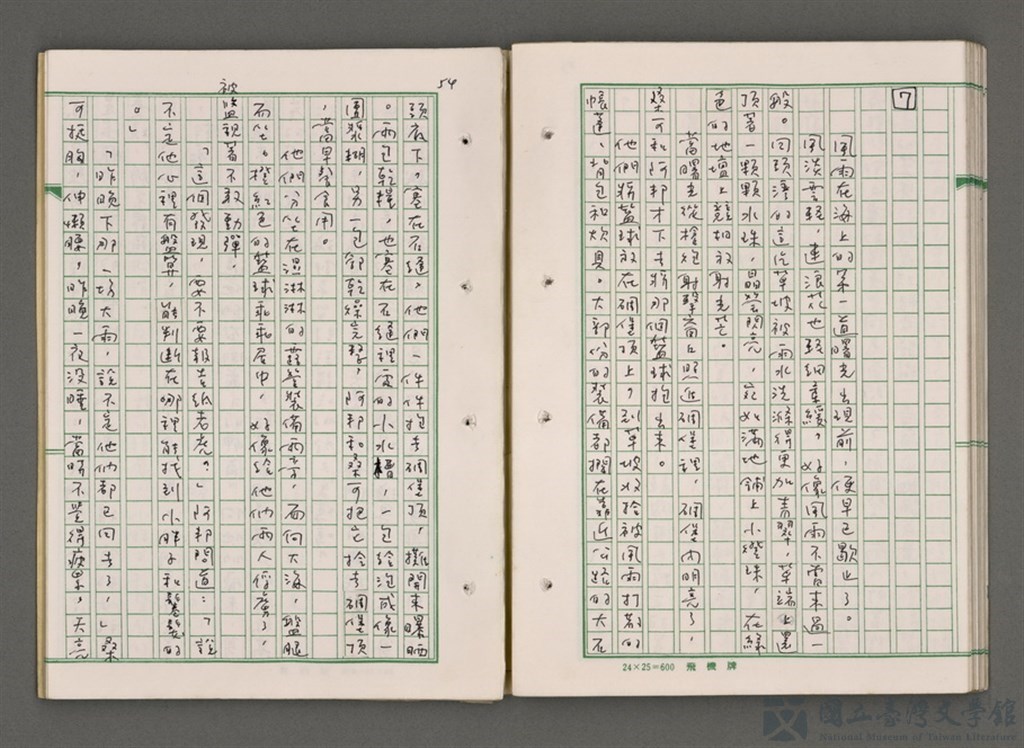 7
風雨在海上的第一道曙光出現前,便早已歇止了。
風淡雲輕,連浪花也輕細重緩,好像風雨不曾來過一
般。回頭漳的這片草坡被雨水洗滌得更加青翠,草端上還
頂著一顆顆水珠,晶瑩閃亮,宛如滿地鋪上小燈珠,在綠
色的地壇上競相放射光芒。
當曙光從槍炮射擊齒丘照進碉堡裡,碉堡內明亮了,
桑可和阿邦才下去將那個籃球抱出來。
他們將籃球放在碉堡頂上,到草坡收拾被風雨打散的
帳蓬、背包和炊具。大部份的裝備都擱在靠近公路的大石
24×25=600 飛機牌
54
頭底下,塞在石縫,他們一件件抱去碉堡頂,攤開來曝晒
。兩包乾糧,也塞在石縫裡處的小水槽,一包給泡成像一
團漿糊,另一包卻乾燥完整,阿邦和桑可把它拾去碉堡頂
,當早餐食用。
他們分坐在濕淋淋的露營裝備兩旁,面向大海,盤腿
而坐。橙紅色的籃球乖乖居中,好像給他們兩人俘虜了,
被
監視著不敢動彈。
「這個發現,要不要報告紙老虎?」阿邦問道:「說
不定他心裡有盤算,能判斷在哪裡能找到小胖子和鬈鬈的
。」
「昨晚下那一場大雨,說不定他們都已回去了,」桑
可挺胸,伸懶腰,昨晚一夜沒睡,當時不覺得疲累,天亮
國立臺灣文學館
National Museum of Taiwan Literature